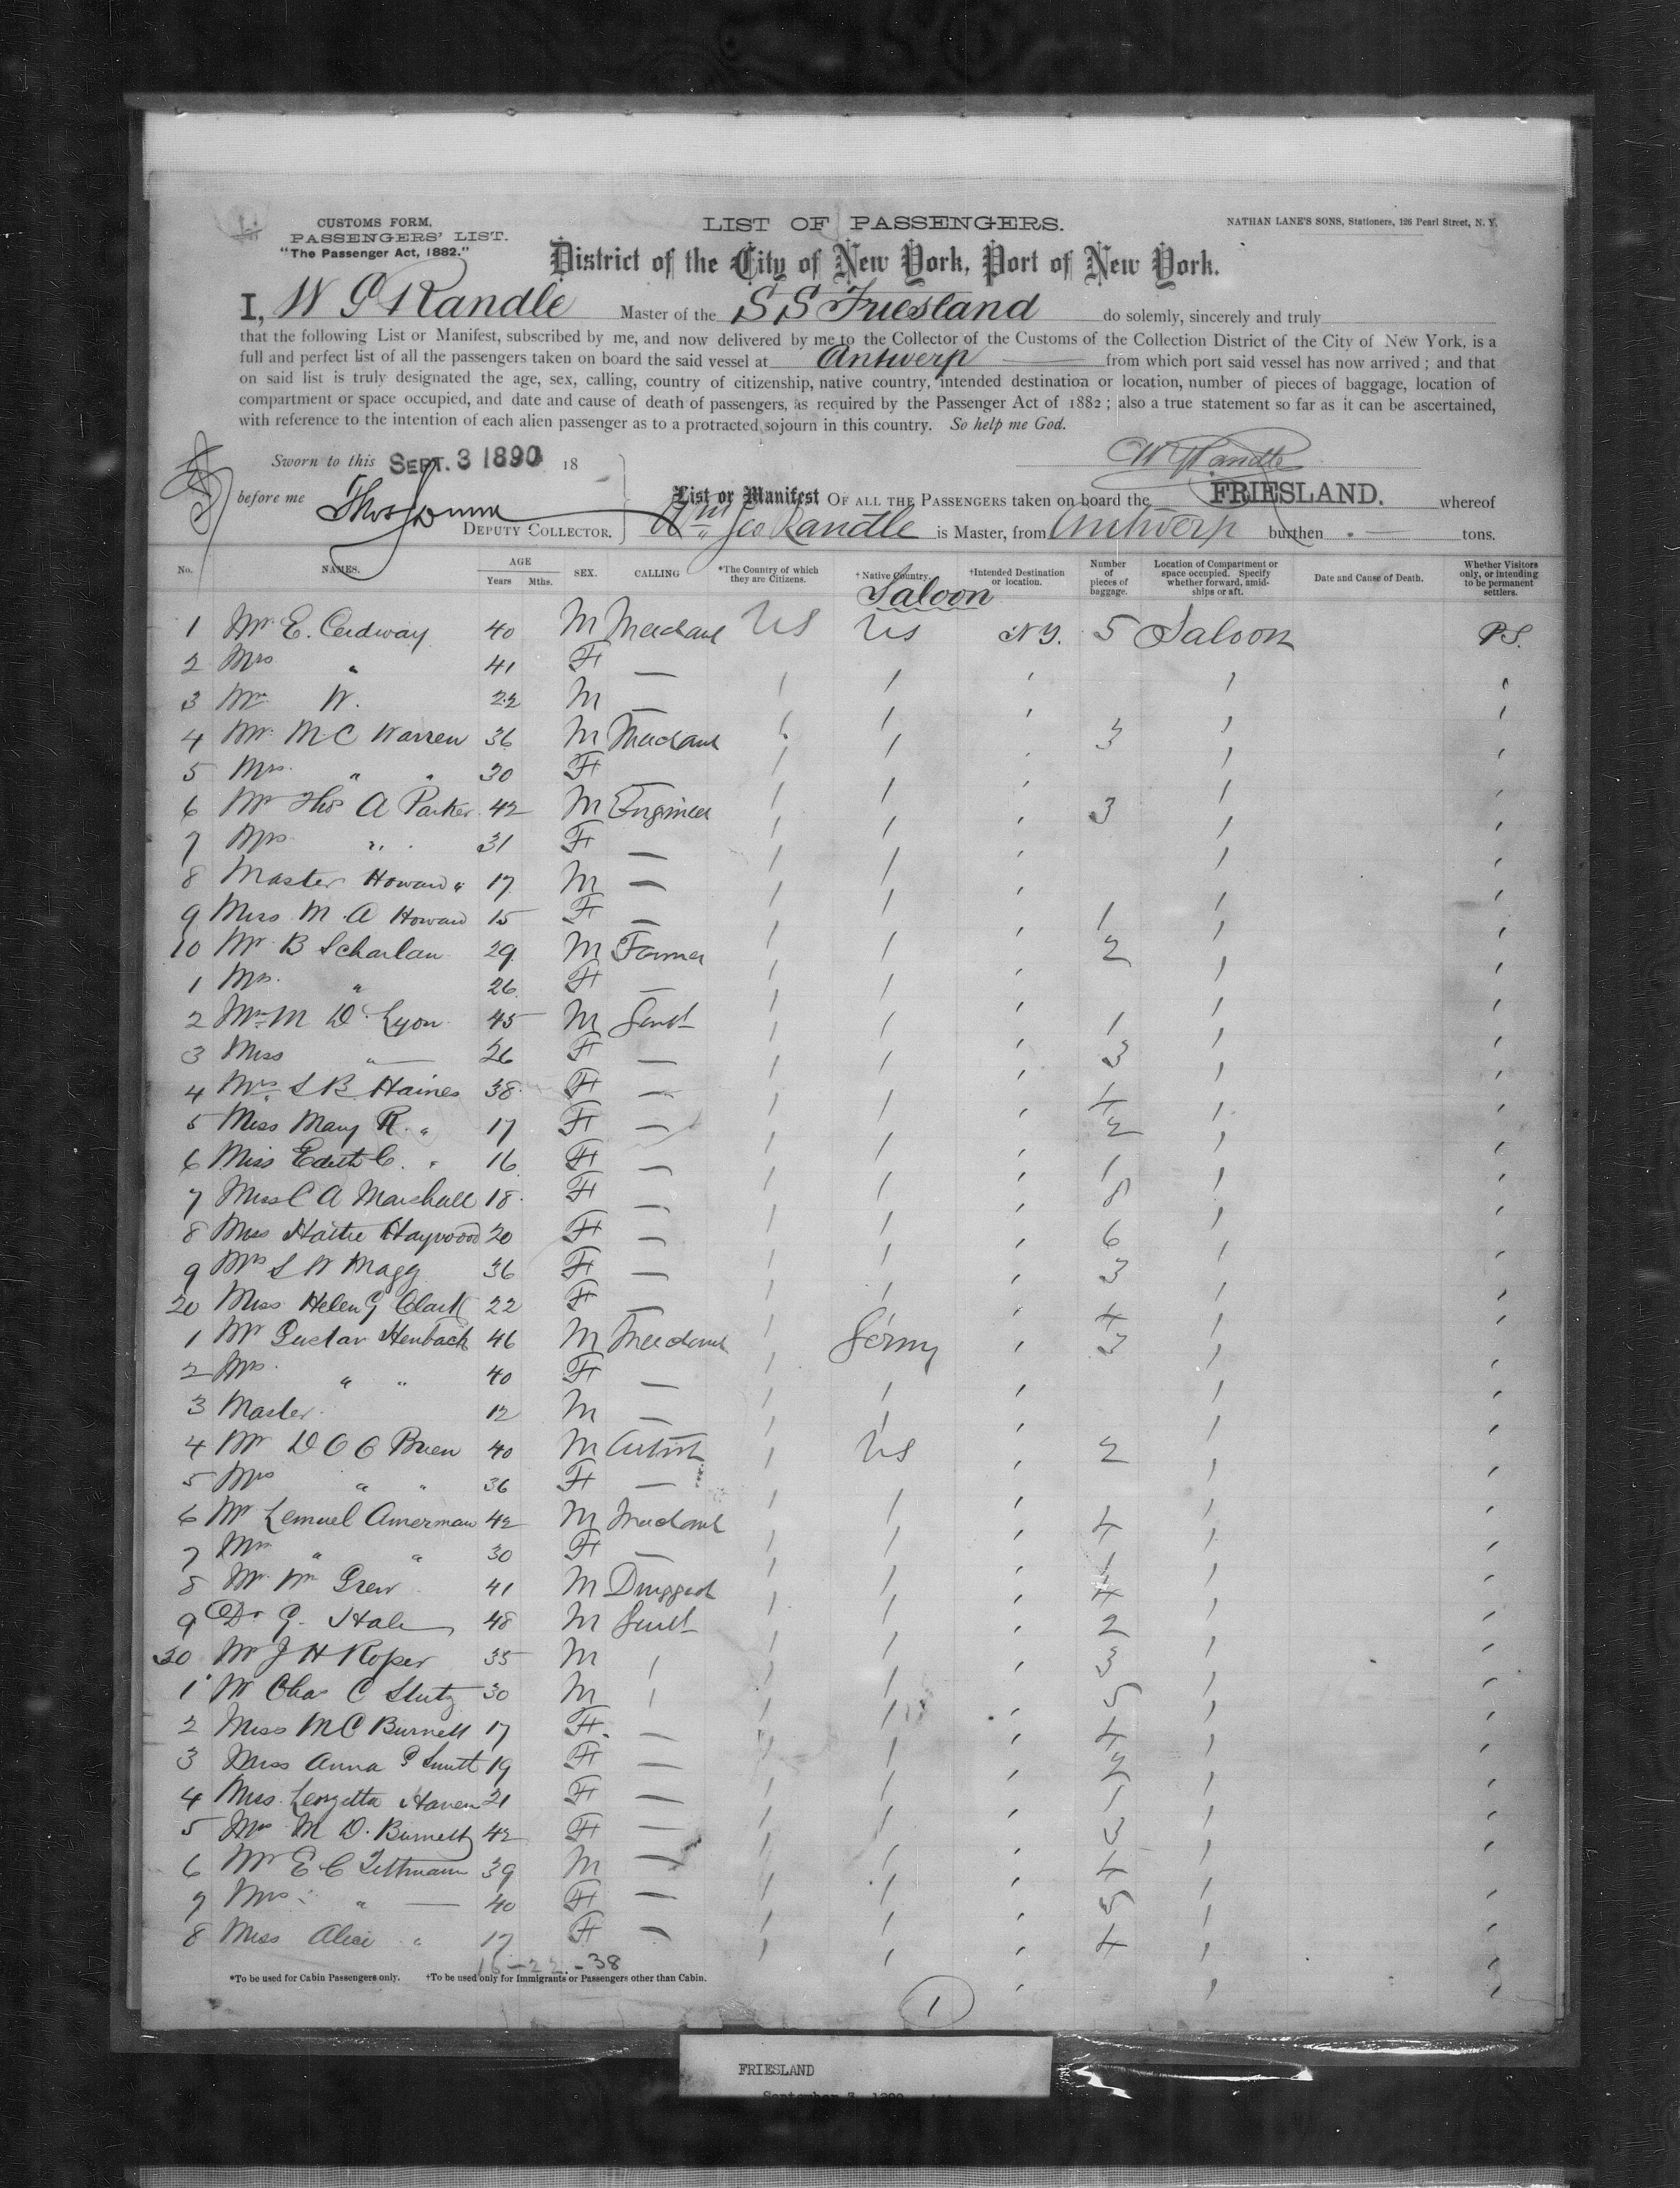 CUSTOMS FORM.
PASSENGERS' LIST.
"The Passenger Act, 1882."
LIST OF PASSENGERS.
NATHAN LANE'S SONS, Stationers, 126 Pearl Street, N. Y.
District of the City of New York, Port of New York.
I, W G Randle Master of the S S Friesland do solemly, sincerely and truly
that the following List or Manifest, subscribed by me, and now delivered by me to the Collector of the Customs of the Collection District of the City of New York, is a
full and perfect list of all the passengers taken on board the said vessel at Antwerp from which port said vessel has now arrived ; and that
on said list is truly designated the age, sex, calling, country of citizenship, native country, intended destination or location, number of pieces of baggage, location of
compartment or space occupied, and date and cause of death of passengers, as required by the Passenger Act of 1882 ; also a true statement so far as it can be ascertained,
with reference to the intention of each alien passenger as to a protracted sojourn in this country. So help me God.
W G Randle
Sworn to this SEPT. 3 1890 18
before me Thos Dunn
DEPUTY COLLECTOR.
List or Manifest OF ALL THE PASSENGERS taken on board the FRIESLAND. whereof
Wm Geo Randle is Master, from Antwerp burthen — tons.
No. NAMES. AGE Years Mths. SEX. CALLING *The Country of which they are Citizens. †Native Country. †Intended Destination or location. Number of pieces of baggage. Location of Compartment or space occupied. Specify whether forward, amidships or aft. Date and Cause of Death. Whether Visitors only, or intending to be permanent settlers.
Saloon
1 Mr E. 40 M US US N Y. 5 Saloon P.S.
2 Mrs " 41 F —
3 Mr W. 22 M —
4 Mr M C Warren 36 M 3
5 Mrs " " 30 F —
6 Mr Thos A Parker 42 M Engineer 3
7 Mrs " 31 F —
8 Master Howard " 17 M —
9 Miss M A Howard 15 F — 1
10 Mr B Scharlau 29 M Farmer 2
1 Mrs " 26 F —
2 Mr M D Lyon 45 M Gent 1
3 Miss " 26 F — 3
4 Mrs S B Haines 38 F — 4
5 Miss Mary R. " 17 F — 2
6 Miss Edith C. " 16 F — 1
7 Miss C A Marshall 18 F — 8
8 Miss Hattie Haywood 20 F — 6
9 Mrs S W Magg 36 F — 3
20 Miss Helen G Clark 22 F — 4
1 Mr Gustav Henbach 46 M Germy 3
2 Mrs " " 40 F —
3 Master 12 M —
4 Mr D O C Brien 40 M Artist US 2
5 Mrs " " 36 F —
6 Mr Lemuel Amerman 42 M 4
7 Mrs " " 30 F — 1
8 Mr Wm Grew 41 M Druggist 4
9 Dr G. Hale 48 M Gent 2
30 Mr J H Roper 35 M 3
1 Mr Chas C Stutz 30 M 5
2 Miss M C Burnett 17 F — 4
3 Miss Anna P Smith 19 F — 2
4 Miss Haven 21 F — 1
5 Mrs M D. Burnett 42 F — 3
6 Mr E C Tittmann 39 M — 4
7 Mrs " — 40 F — 5
8 Miss Alice " 17 F — 4
16 - 22 - 38
*To be used for Cabin Passengers only. †To be used only for Immigrants or Passengers other than Cabin.
1
FRIESLAND
September 3, 1890